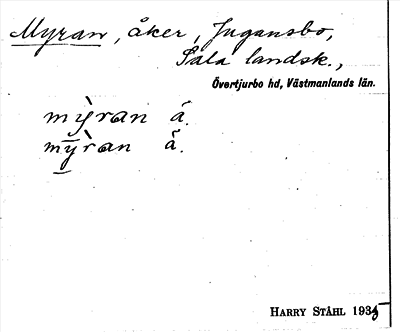 Myran, åker, Jugansbo,
Sala landsk.,
Övertjurbo hd, Västmanlands län.
mỳran å̄.
mȳ̀ran å̄.
HARRY STÅHL 1935